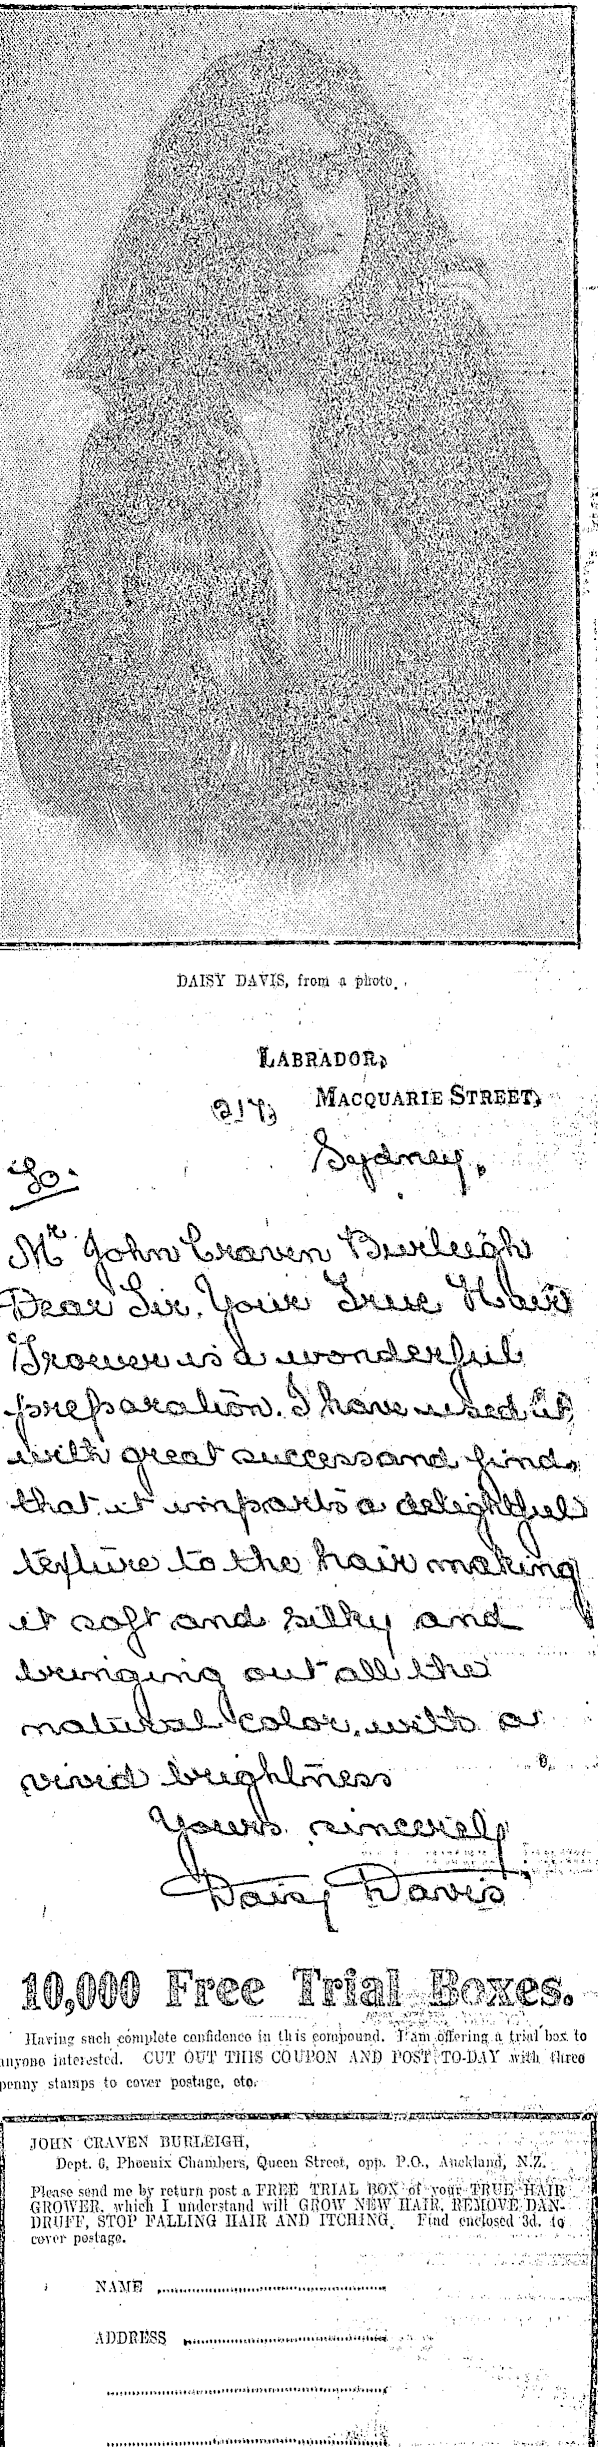 DAISY DAVIS, from a photo.
LABRADOR,
217, MACQUARIE STREET,
Sydney.
To.
Mr John Craven Burleigh
Dear Sir. Your True Hair
Grower is a wonderful
preparation. I have used it
with great success and find
that it imparts a delightful
texture to the hair making
it soft and silky and
bringing out all the
natural color, with a
vivid brightness
Yours sincerely
Daisy Davis
10,000 Free Trial Boxes.
Having such complete confidence in this compound. I am offering a trial box to
anyone interested. CUT OUT THIS COUPON AND POST TO-DAY with three
penny stamps to cover postage, etc.
JOHN CRAVEN BURLEIGH,
Dept. 6, Phoenix Chambers, Queen Street, opp. P.O., Auckland, N.Z.
Please send me by return post a FREE TRIAL BOX of your TRUE HAIR
GROWER, which I understand will GROW NEW HAIR, REMOVE DAN-
DRUFF, STOP FALLING HAIR AND ITCHING. Find enclosed 3d. to
cover postage.
NAME
ADDRESS